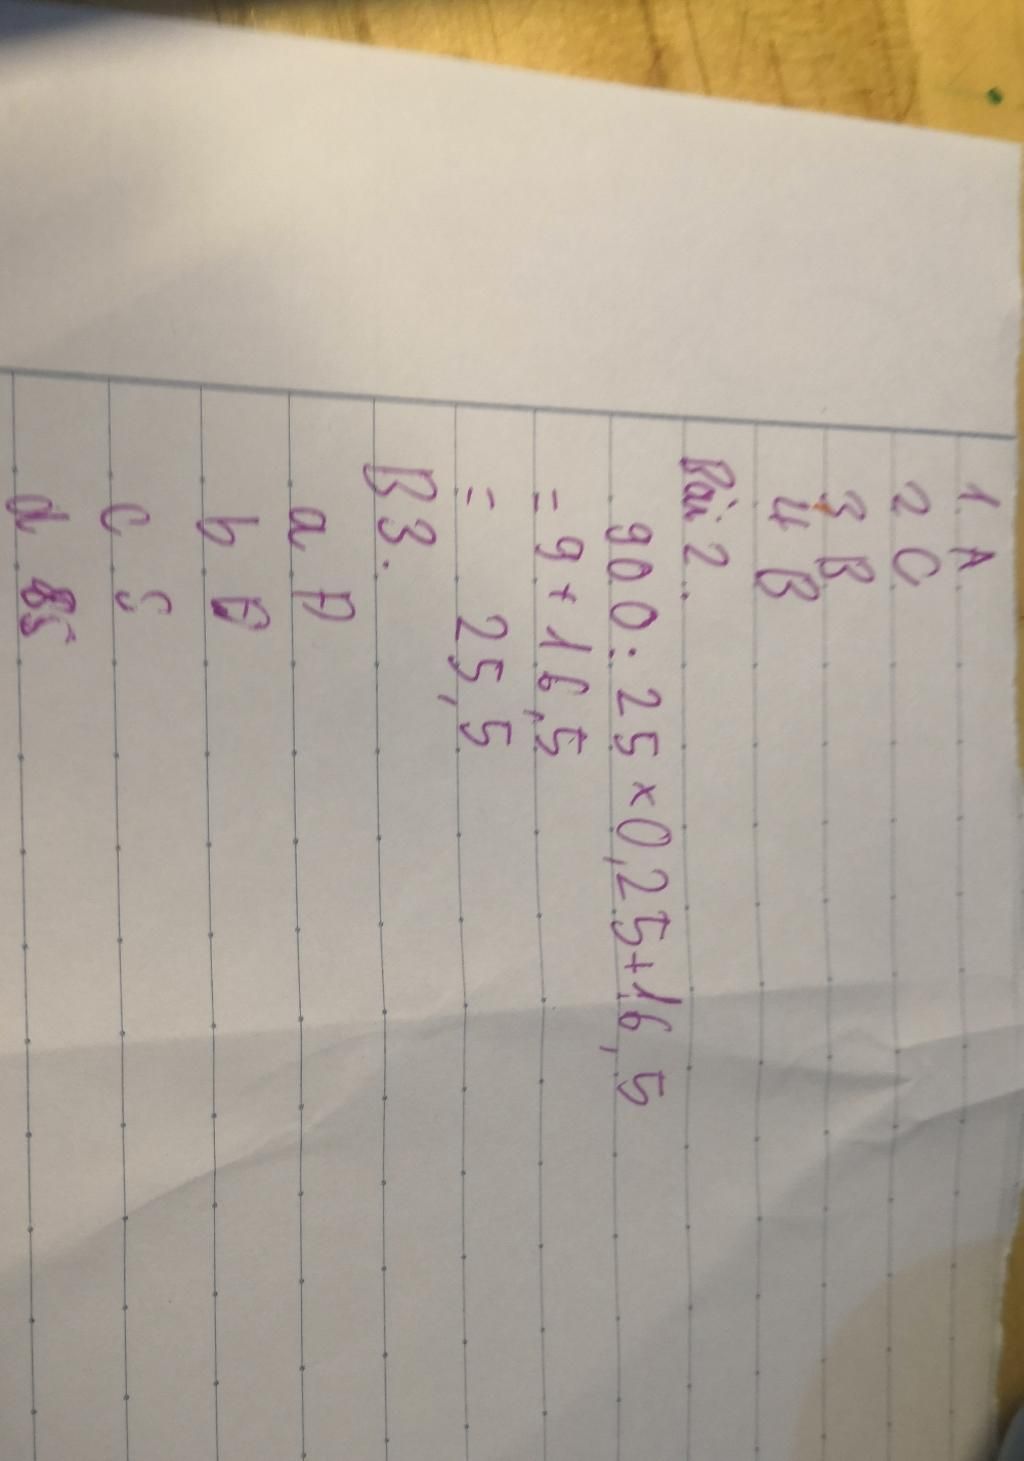 1. A
2 C
3 B
4 B
Bài 2.
900 : 25 × 0,25 + 16,5
= 9 + 16,5
= 25,5
B 3.
a Đ
b Đ
c S
d S